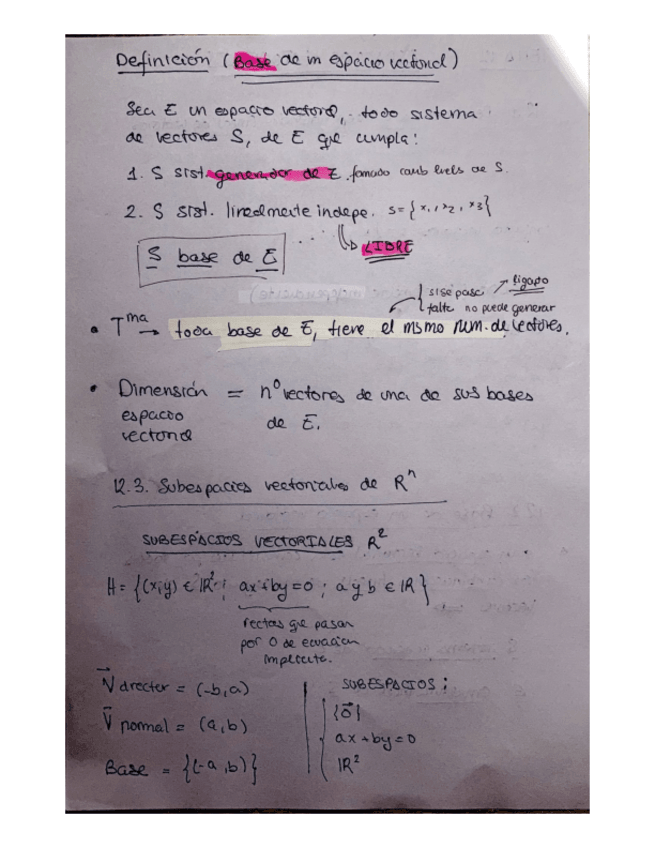 Definición (Base de un espacio vectorial)
Sea E un espacio vectorial, todo sistema
de vectores S, de E que cumpla:
1. S sist. generador de E. formado comb lvels de S.
2. S sist. linealmente indepe. S = { x1, x2, x3 }
LIBRE
S base de E
si se pasa → ligado
falta no puede generar
• Tma → toda base de E, tiene el mismo num. de vectores.
• Dimensión = nº vectores de una de sus bases
espacio de E.
vectorial
12.3. Subespacios vectoriales de Rⁿ
SUBESPACIOS VECTORIALES R²
H = {(x,y) ∈ IR²; ax+by=0; a y b ∈ IR}
rectas que pasan
por 0 de ecuación
implícita.
V⃗ director = (-b,a)
V⃗ normal = (a,b)
Base = {(-a,b)}
SUBESPACIOS:
{0⃗}
ax+by=0
IR²